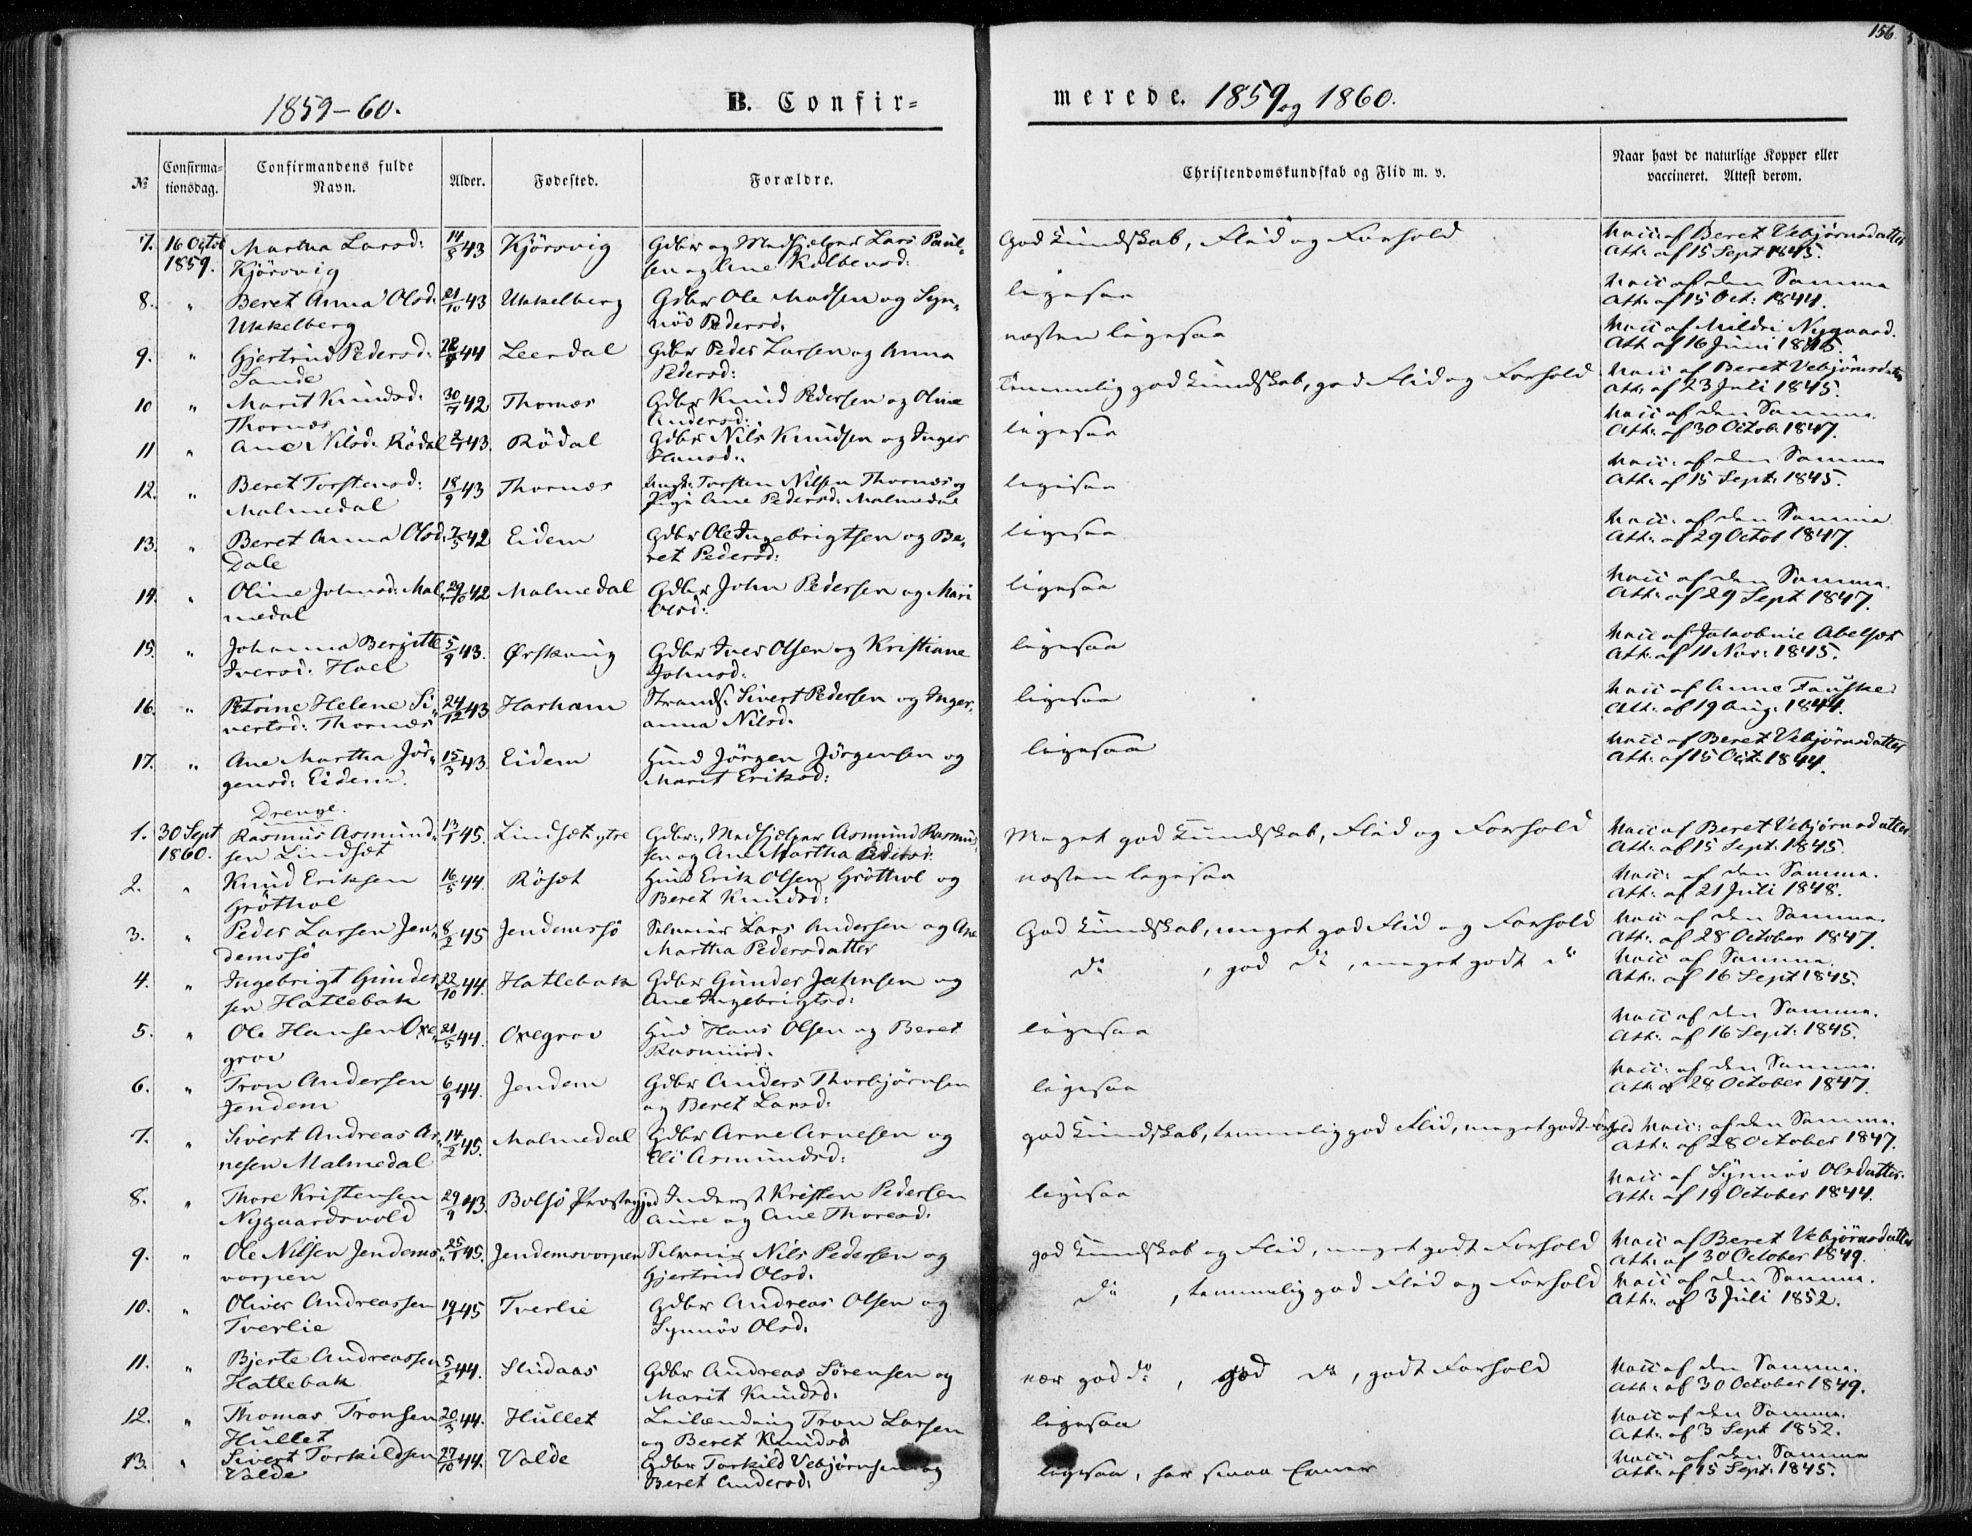 156.
1859-60. B. Confir= merede. 1859 og 1860.
№ Confirma- tionsdag. Confirmandens fulde Navn. Alder. Fødested. Forældre. Christendomskundskab og Flid m. v. Naar havt de naturlige Kopper eller vaccineret. Attest derom.
7. 16 Octob Martha Larsd: 14/8 43 Kjörsvig Gdbr og Medhjelper Lars Paul- God Kundskab, Flid og Forhold Vacc: af Beret Vebjørnsdatter
1859. Kjörsvig sen og Ane Kolbensd: Att: af 15 Sept 1845.
8. " Beret Anna Olsd. 21/10 43 Ukkelberg Gdbr Ole Madsen og Syn- ligesaa Vacc af den Samme
Ukkelberg növ Pedersd. Att: af 15 Oct: 1844.
9. " Gjertrud Pedersd: 44 Leerdal Gdbr Peder Larsen og Anna næsten ligesaa Vacc af Mildri Nygaard.
Sande Pedersd: Att af 16 Juni 1845.
10 " Marit Knudsd. 30/7 42 Thornæs Gdbr Knud Pedersen og Oline Temmelig god Kundskab, god Flid og Forhold Vacc af Beret Vebjørnsdatter
Thornæs Andersd: Att: af 23 Juli 1845.
11 " Ane Nilsd. Rödal 43. Rödal Gdbr Nils Knudsen og Inger ligesaa Vacc af den Samme.
Hansd: Att: af 30 Octob: 1847.
12. " Beret Torstensd: 18/9 43 Thornæs Ungk: Torsten Nilsen Thornæs og ligesaa Vacc: af den Samme
Malmedal Pige Ane Pedersd: Malmedal Att: af 15 Sept: 1845.
13. " Beret Anna Olsd. 7/5 42 Eidem Gdbr Ole Ingebrigtsen og Be- ligesaa Vacc: af den Samme
Dale ret Pedersd: Att: af 29 Octob 1847.
14. " Oline Johnsd: Mal- 29/10 42 Malmedal Gdbr John Pedersen og Mari ligesaa Vacc af den Samme.
medal Olsd: Att: af 29 Sept 1847.
15. " Johanna Bergitte 5/9 43. Ørskoug Gdbr Iver Olsen og Kristiane ligesaa Vacc af Jakobine Abelset
Iversd: Hoel Johnsd: Att: af 11 Nov: 1845.
16. " Petrine Helene Si- 24/12 43 Harham Strands: Sivert Pedersen og Inger- ligesaa Vacc af Anne Fauske
vertsd: Thornæs anna Nilsd. Att: af 19 Aug. 1844.
17. " Ane Martha Jör- 15/3 43. Eidem Huus Jörgen Jörgensen og ligesaa Vacc af Beret Vebjørnsdatter
gensd: Eidem. Marit Eriksd: Att: af 15 Oct: 1844.
Drenge.
1. 30 Sept Rasmus Asmund- 13/1 45. Lindset ytre Gdbr:, Medhjelper Asmund Rasmus- Meget god Kundskab, Flid og Forhold Vacc af Beret Vebjørnsdatter
1860. sen Lindset sen og Ane Martha Att: af 15 Sept: 1845.
2. " Knud Eriksen 16/5 44. Röset Huus Erik Olsen Gröthol og næsten ligesaa Vacc: af den Samme.
Gröthol Beret Knudsd: Att: af 21 Juli 1848.
3. " Peder Larsen Jen- 8/2 45 Jendemssö Selveier Lars Andersen og Ane God Kundskab, meget god Flid og Forhold Vacc af den Samme.
demssö Martha Pedersdatter Att: af 28 October 1847.
4. " Ingebrigt Gunder- 22/10 44. Hatlebak Gdbr Gunder Jahnsen og do , god do , meget godt do Vacc af Samme.
sen Hatlebak Ane Ingebrigtsd: Att: af 16 Sept 1845.
5. " Ole Hansen Oxe- 21/5 44. Oxegrov Huus Hans Olsen og Beret ligesaa Vacc af den Samme.
grov Rasmusd. Att: af 16 Sept: 1845.
6. " Tron Andersen 6/9 44. Jendem Gdbr Anders Thorbjørnsen ligesaa Vacc: af den Samme.
Jendem og Beret Larsd: Att: af 28 October 1847.
7. " Sivert Andreas Ar- 14/2 45. Malmedal Gdbr Arne Arnesen og god Kundskab, temmelig god Flid, meget godt Vacc: af den Samme.
nesen Malmedal Eli Asmundsd: Att: af 28 October 1847.
8. " Thore Kristensen 29/9 43. Bolsö Præstegjed Inderst Kristen Pedersen ligesaa Vacc af Synnöv Olsdatter.
Nygaardsvold Aure og Ane Thoresd. Att: af 19 October 1844.
9. " Ole Nilsen Jendems- 25/1 45. Jendemsvorpen Selveier Nils Pedersen og god Kundskab og Flid, meget godt Forhold Vacc af Beret Vebjørnsdatter
vorpen Gjertrud Olsd. Att: af 30 October 1849.
10. " Oliver Andreassen 19/1 45 Tverlie Gdbr Andreas Olsen og do , temmelig god Flid og Forhold Vacc af den Samme.
Tverlie Synnöv Olsd. Att: af 3 Juli 1852.
11. " Bjerte Andreassen 5/2 44. Gdbr Andreas Sörensen og nær god do , god do , godt Forhold Vacc af den Samme.
Hatlebak Marit Knudsd. Att: af 30 October 1849.
12. " Thomas Tronsen 20/3 44. Hullet Leilænding Tron Larsen ligesaa Vacc af den Samme.
Hullet og Beret Knudsd Att: af 3 Sept 1852.
13. " Sivert Torkildsen 27/10 44. Valde Gdbr Torkild Vebjørnsen og ligesaa, har smaa Evner Vacc: af den Samme
Valde Beret Andersd: Att: af 15 Sept: 1845.